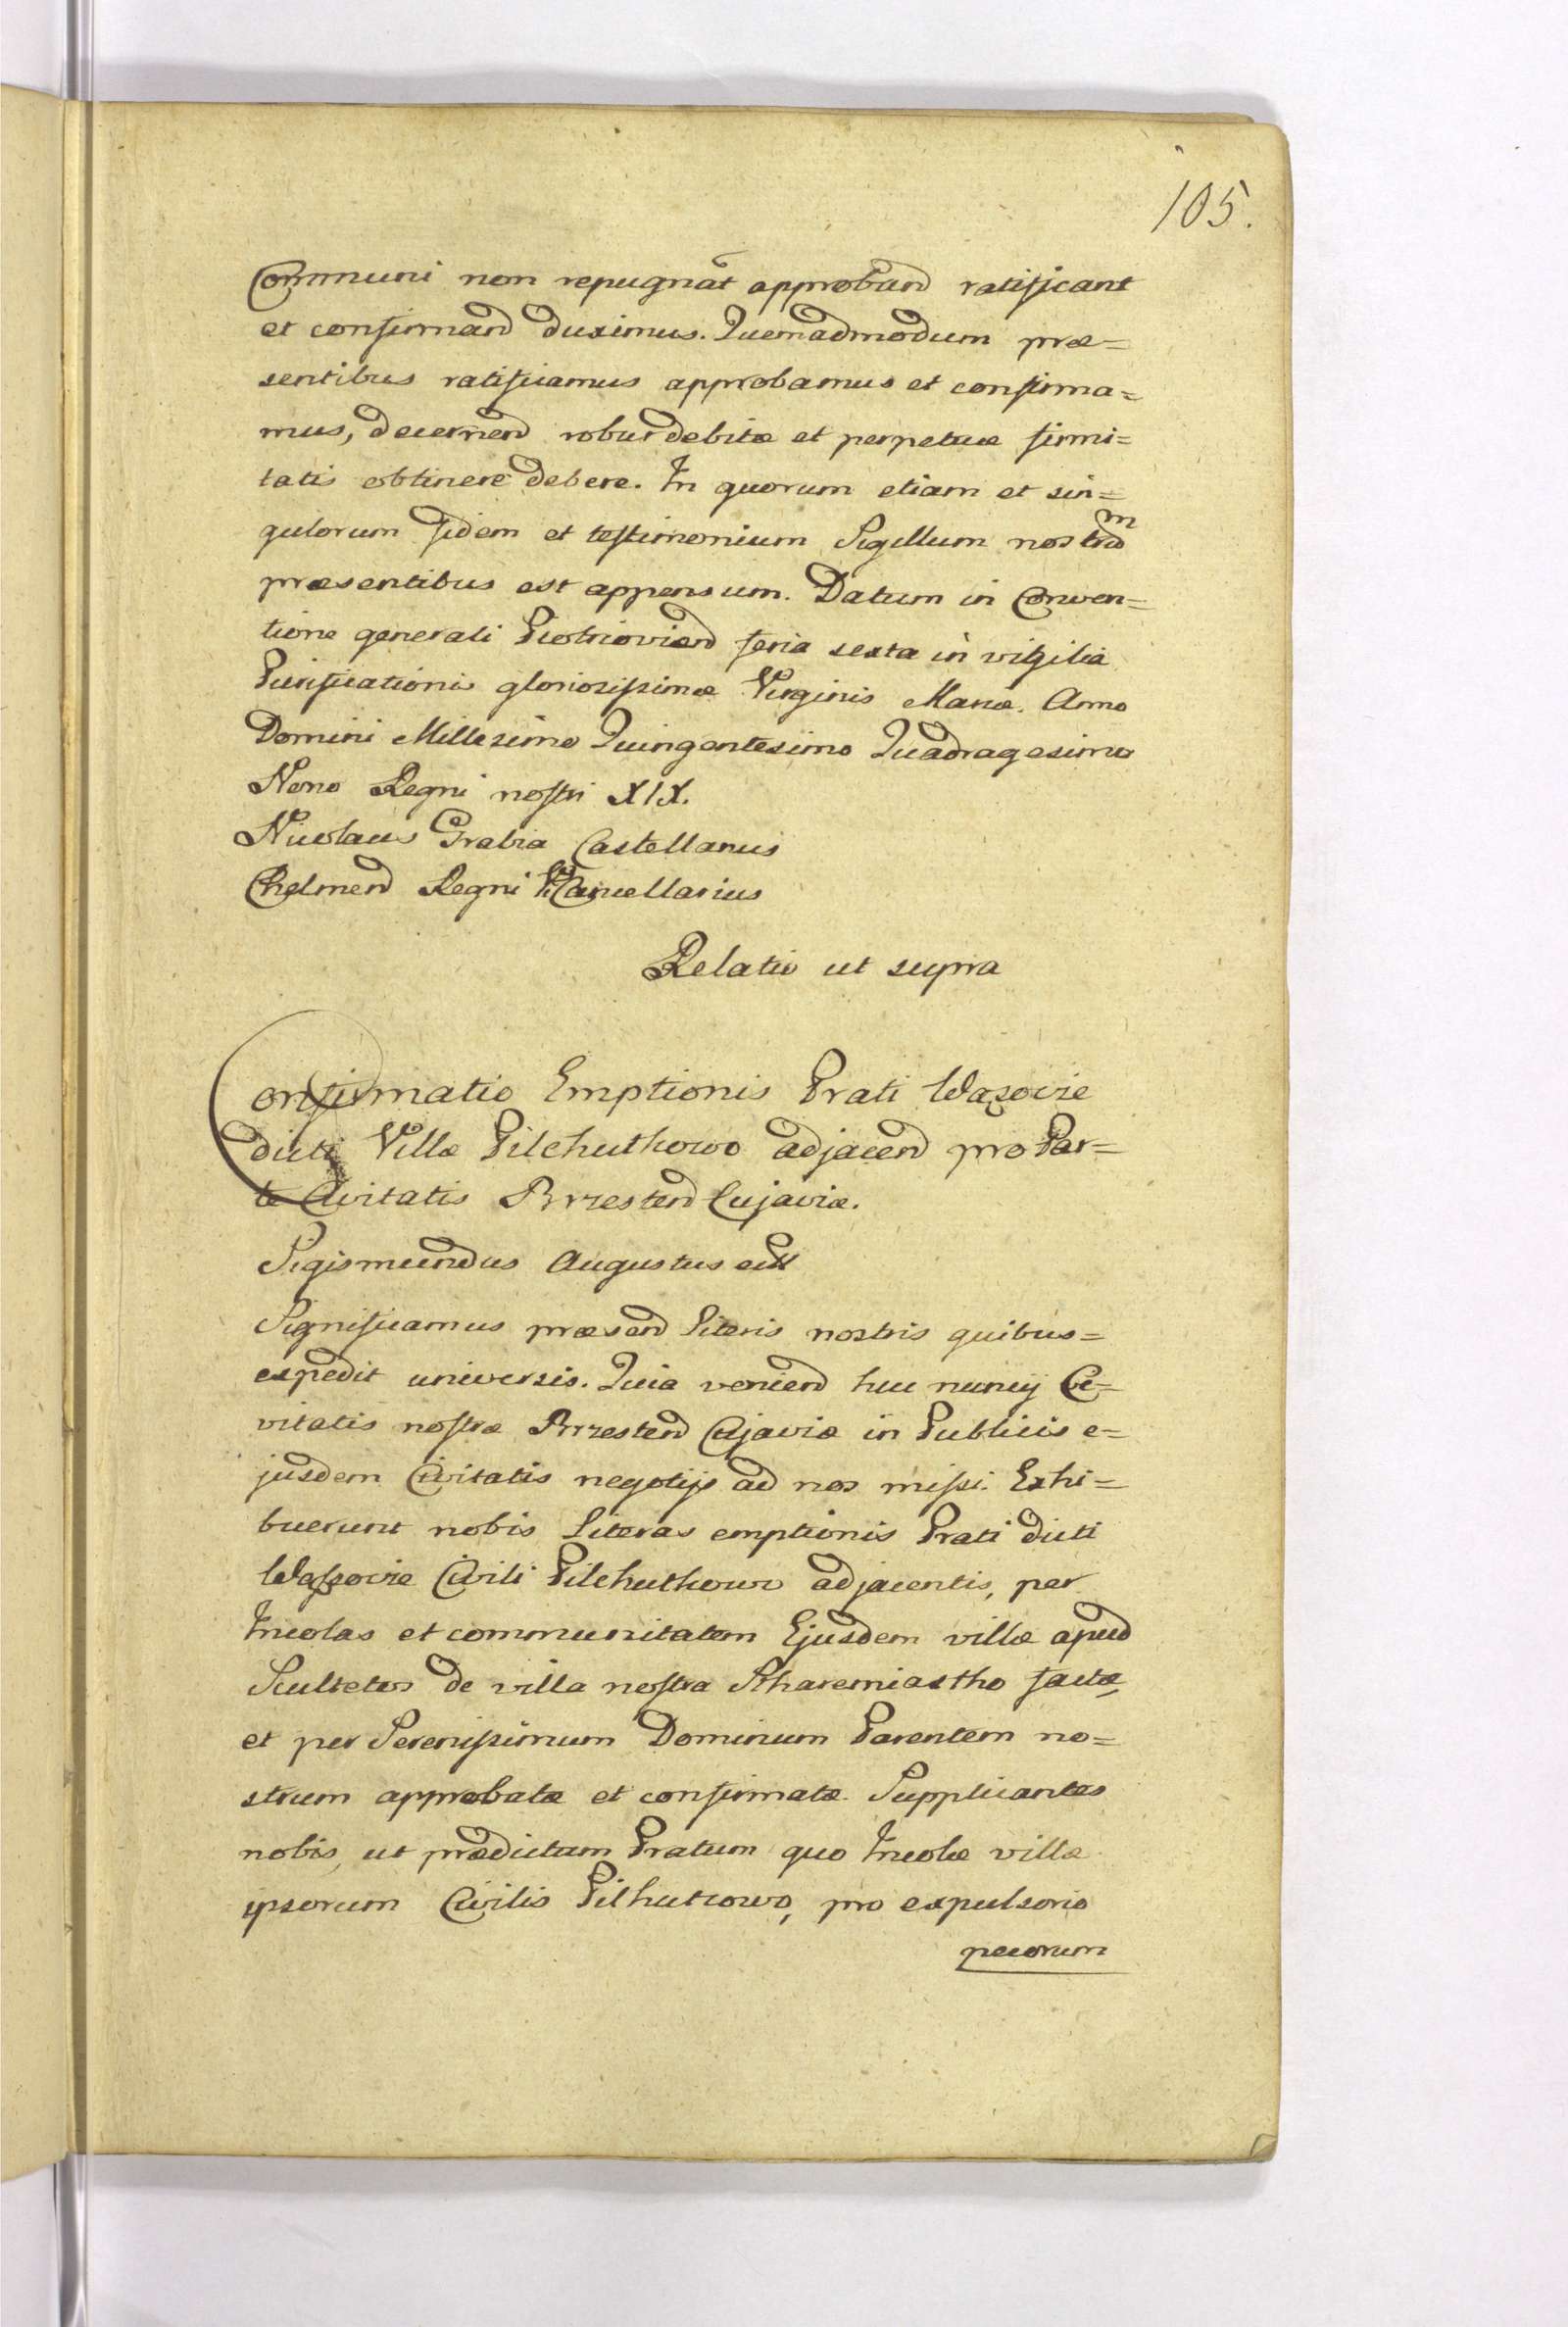 105.
Communi non repugnāt approband ratificant
et confirmand duximus. Quemadmodum præ=
sentibus ratificamus approbamus et confirma=
mus, decernend robur debitæ et perpetuæ firmi=
tatis obtinere debere. In quorum etiam et sin=
gulorum fidem et testimonium Sigillum nostrum
præsentibus est appensum. Datum in Conven=
tione generali Piotrioviend feria sexta in vigilia
Purificationis gloriosissimæ Virginis Mariæ. Anno
Domini Millesimo Quingentesimo Quadragesimo
Nono Regni nostri XIX.
Nicolaus Grabia Castellanus
Chelmend Regni Vicecancellarius
Relatio ut supra
Confirmatio Emptionis Prati Wazovie
dicti Villæ Pilchuthowo adjacend pro Par=
te Civitatis Brzestend Cujaviæ.
Sigismundus Augustus
Significamus præsend literis nostris quibus=
expedit universis. Quia veniend huc nuncij Ci=
vitatis nostræ Brzestend Cujaviæ in Publicis e=
jusdem Civitatis negotijs ad nos missi. Exhi=
buerunt nobis literas emptionis Prati dicti
Wassovie Civili Pilchuthowo adjacentis, per
Incolas et communitatem Ejusdem villæ apud
Scultetos de villa nostra Stharemiastho factæ,
et per Serenissimum Dominum Parentem no=
strum approbatæ et confirmatæ. Supplicantes
nobis, ut prædictam Pratum quo Incolæ villæ
ipsorum Civilis Pilhutcowo, pro expulsorio
pecorum